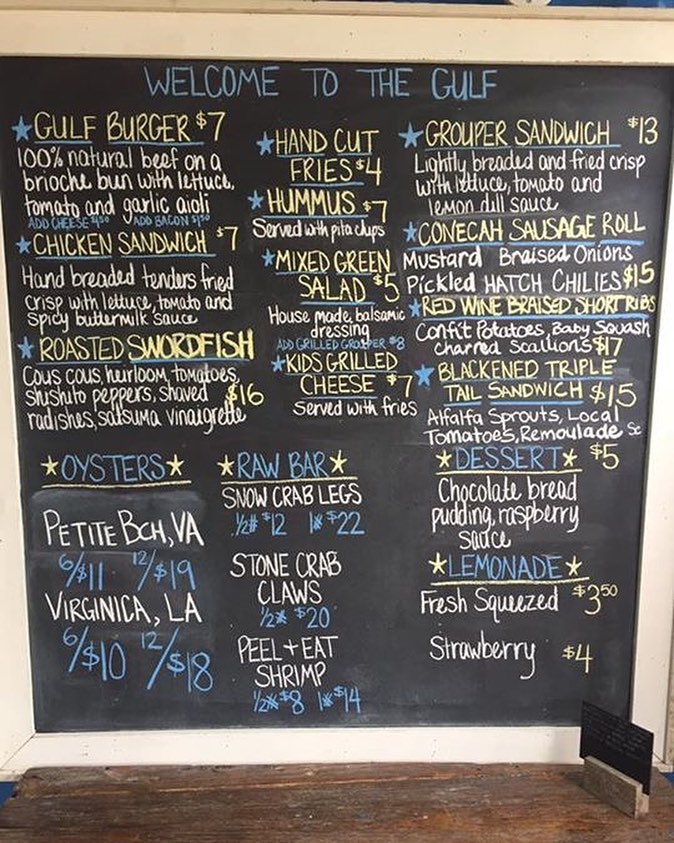 WELCOME TO THE GULF
★ GULF BURGER $7
100% natural beef on a
brioche bun with lettuce,
tomato and garlic aioli
ADD CHEESE $1.50 ADD BACON $1.50
★ CHICKEN SANDWICH $7
Hand breaded tenders fried
crisp with lettuce, tomato and
spicy buttermilk sauce
★ ROASTED SWORDFISH
Cous cous, heirloom tomatoes,
shishito peppers, shaved $16
radishes, satsuma vinaigrette
★ HAND CUT
FRIES $4
★ HUMMUS $7
Served with pita chips
★ MIXED GREEN
SALAD $5
House made, balsamic
dressing
ADD GRILLED GROUPER $8
★ KIDS GRILLED
CHEESE $7
Served with fries
★ GROUPER SANDWICH $13
Lightly breaded and fried crisp
with lettuce, tomato and
lemon dill sauce
★ CONECAH SAUSAGE ROLL
Mustard Braised Onions
Pickled HATCH CHILIES $15
★ RED WINE BRAISED SHORT RIBS
Confit Potatoes, Baby Squash
charred Scallions $17
★ BLACKENED TRIPLE
TAIL SANDWICH $15
Alfalfa Sprouts, Local
Tomatoes, Remoulade Sc
★ OYSTERS ★
PETITE BCH, VA
6/$11 12/$19
VIRGINICA, LA
6/$10 12/$18
★ RAW BAR ★
SNOW CRAB LEGS
1/2# $12 1# $22
STONE CRAB
CLAWS
1/2# $20
PEEL + EAT
SHRIMP
1/2# $8 1# $14
★ DESSERT ★ $5
Chocolate bread
pudding, raspberry
sauce
★ LEMONADE ★
Fresh Squeezed $3.50
Strawberry $4